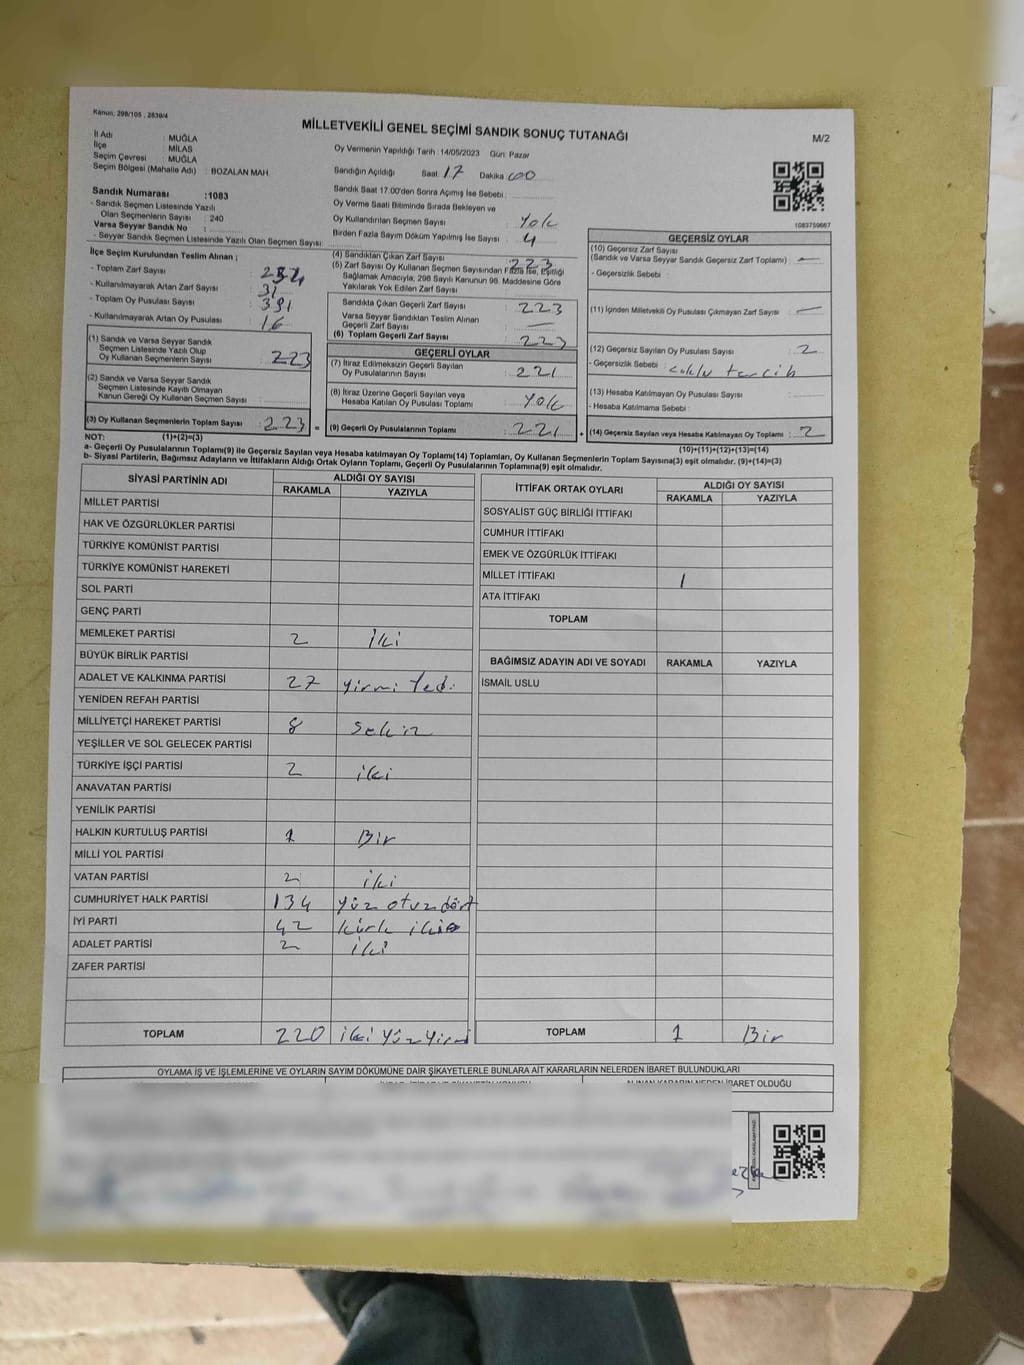 Kanun; 298/105 , 2839/4
MİLLETVEKİLİ GENEL SEÇİMİ SANDIK SONUÇ TUTANAĞI
M/2
İl Adı : MUĞLA
İlçe : MİLAS
Seçim Çevresi : MUĞLA
Seçim Bölgesi (Mahalle Adı) : BOZALAN MAH.
Sandık Numarası :1083
- Sandık Seçmen Listesinde Yazılı
Olan Seçmenlerin Sayısı : 240
Varsa Seyyar Sandık No :
- Seyyar Sandık Seçmen Listesinde Yazılı Olan Seçmen Sayısı:
Oy Vermenin Yapıldığı Tarih : 14/05/2023 Gün: Pazar
Sandığın Açıldığı Saat 17 Dakika 00
Sandık Saat 17.00'den Sonra Açımış İse Sebebi:
Oy Verme Saati Bitiminde Sırada Bekleyen ve
Oy Kullandırılan Seçmen Sayısı : Yok
Birden Fazla Sayım Döküm Yapılmış İse Sayısı : 4
1083759667
İlçe Seçim Kurulundan Teslim Alınan ;
- Toplam Zarf Sayısı :
- Kullanılmayarak Artan Zarf Sayısı : 31
- Toplam Oy Pusulası Sayısı :
- Kullanılmayarak Artan Oy Pusulası : 16
(1) Sandık ve Varsa Seyyar Sandık
Seçmen Listesinde Yazılı Olup
Oy Kullanan Seçmenlerin Sayısı : 223
(2) Sandık ve Varsa Seyyar Sandık
Seçmen Listesinde Kayıtlı Olmayan
Kanun Gereği Oy Kullanan Seçmen Sayısı :
(3) Oy Kullanan Seçmenlerin Toplam Sayısı : 223 =
(4) Sandıktan Çıkan Zarf Sayısı : 223
(5) Zarf Sayısı Oy Kullanan Seçmen Sayısından Fazla İse, Eşitliği
Sağlamak Amacıyla; 298 Sayılı Kanunun 98. Maddesine Göre
Yakılarak Yok Edilen Zarf Sayısı :
Sandıkta Çıkan Geçerli Zarf Sayısı : 223
Varsa Seyyar Sandıktan Teslim Alınan
Geçerli Zarf Sayısı : —
(6) Toplam Geçerli Zarf Sayısı : 223
GEÇERLİ OYLAR
(7) İtiraz Edilmeksizin Geçerli Sayılan
Oy Pusulalarının Sayısı : 221
(8) İtiraz Üzerine Geçerli Sayılan veya
Hesaba Katılan Oy Pusulası Toplamı : Yok
(9) Geçerli Oy Pusulalarının Toplamı : 221 +
GEÇERSİZ OYLAR
(10) Geçersiz Zarf Sayısı
(Sandık ve Varsa Seyyar Sandık Geçersiz Zarf Toplamı) : —
- Geçersizlik Sebebi :
(11) İçinden Milletvekili Oy Pusulası Çıkmayan Zarf Sayısı : —
(12) Geçersiz Sayılan Oy Pusulası Sayısı : 2
- Geçersizlik Sebebi : çoklu tercih
(13) Hesaba Katılmayan Oy Pusulası Sayısı :
- Hesaba Katılmama Sebebi :
(14) Geçersiz Sayılan veya Hesaba Katılmayan Oy Toplamı : 2
NOT: (1)+(2)=(3)
(10)+(11)+(12)+(13)=(14)
a- Geçerli Oy Pusulalarının Toplamı(9) ile Geçersiz Sayılan veya Hesaba katılmayan Oy Toplamı(14) Toplamları, Oy Kullanan Seçmenlerin Toplam Sayısına(3) eşit olmalıdır. (9)+(14)=(3)
b- Siyasi Partilerin, Bağımsız Adayların ve İttifakların Aldığı Ortak Oyların Toplamı, Geçerli Oy Pusulalarının Toplamına(9) eşit olmalıdır.
SİYASİ PARTİNİN ADI ALDIĞI OY SAYISI
RAKAMLA YAZIYLA
MİLLET PARTİSİ
HAK VE ÖZGÜRLÜKLER PARTİSİ
TÜRKİYE KOMÜNİST PARTİSİ
TÜRKİYE KOMÜNİST HAREKETİ
SOL PARTİ
GENÇ PARTİ
MEMLEKET PARTİSİ 2 iki
BÜYÜK BİRLİK PARTİSİ
ADALET VE KALKINMA PARTİSİ 27 yirmi Yedi
YENİDEN REFAH PARTİSİ
MİLLİYETÇİ HAREKET PARTİSİ 8 Sekiz
YEŞİLLER VE SOL GELECEK PARTİSİ
TÜRKİYE İŞÇİ PARTİSİ 2 iki
ANAVATAN PARTİSİ
YENİLİK PARTİSİ
HALKIN KURTULUŞ PARTİSİ 1 Bir
MİLLİ YOL PARTİSİ
VATAN PARTİSİ 2 iki
CUMHURİYET HALK PARTİSİ 134 yüz otuz dört
İYİ PARTİ 42 kırk iki
ADALET PARTİSİ 2 iki
ZAFER PARTİSİ
TOPLAM 220 iki yüz yirmi
İTTİFAK ORTAK OYLARI ALDIĞI OY SAYISI
RAKAMLA YAZIYLA
SOSYALİST GÜÇ BİRLİĞİ İTTİFAKI
CUMHUR İTTİFAKI
EMEK VE ÖZGÜRLÜK İTTİFAKI
MİLLET İTTİFAKI 1
ATA İTTİFAKI
TOPLAM
BAĞIMSIZ ADAYIN ADI VE SOYADI RAKAMLA YAZIYLA
İSMAİL USLU
TOPLAM 1 Bir
OYLAMA İŞ VE İŞLEMLERİNE VE OYLARIN SAYIM DÖKÜMÜNE DAİR ŞİKAYETLERLE BUNLARA AİT KARARLARIN NELERDEN İBARET BULUNDUKLARI
ALINAN KARARIN NEDEN İBARET OLDUĞU